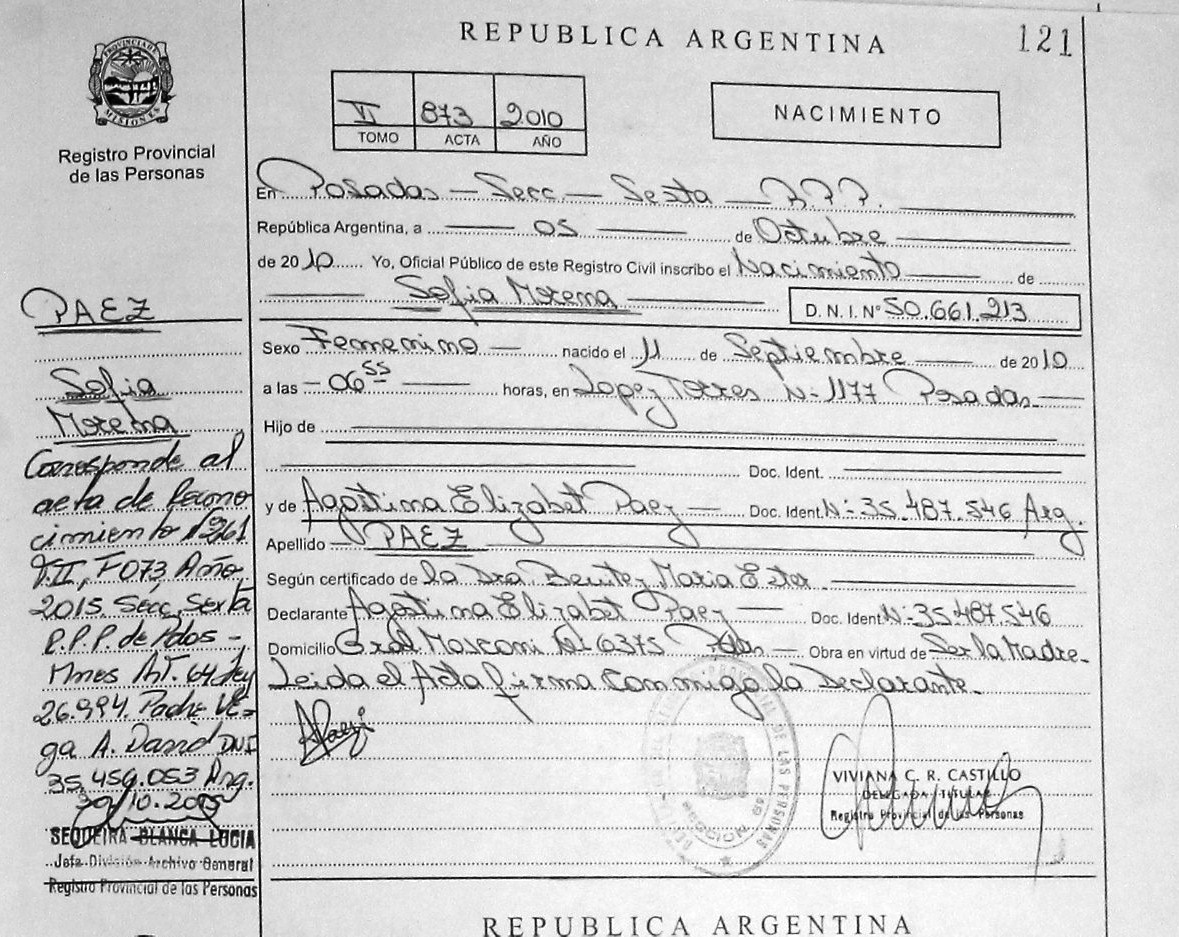 REPUBLICA ARGENTINA
121
PROVINCIA DE MISIONES
Registro Provincial
de las Personas
VI 873 2010
TOMO ACTA AÑO
NACIMIENTO
En Posadas — Secc. — Sexta — R.P.P.
República Argentina, a — 05 — de Octubre
de 2010 Yo, Oficial Público de este Registro Civil inscribo el Nacimiento — de
Sofia Morena
D. N. I. Nº 50.661.213
Sexo Femenino — nacido el 11 de Septiembre — de 2010
a las — 06 55 — horas, en Lopez Torres Nº 1177 Posadas.—
Hijo de
Doc. Ident.
y de Agostina Elizabet Paez — Doc. Ident. Nº 35.487.546 Arg.
Apellido — PAEZ
Según certificado de la Dra Benitez Maria Ester
Declarante Agostina Elizabet Paez — Doc. Ident. Nº 35.487.546
Domicilio Gral Mosconi Nº 6375 Pdas — Obra en virtud de Ser la Madre.
Leida el Acta firma Conmigo la Declarante.
APaez
VIVIANA C. R. CASTILLO
DELEGADA TITULAR
Registro Provincial de las Personas
PAEZ
Sofia
Morena
Corresponde al
acta de Recono
cimiento Nº 261
T.II, F073, Año
2015. Secc. Sexta
R.P.P. de Pdas -
Mnes Art. 64 Ley
26.994. Padre Ve=
ga A. David DNI
35.459.053 Arg.
30/10.2015
SEQUEIRA BLANCA LUCIA
Jefa División Archivo General
Registro Provincial de las Personas
REPUBLICA ARGENTINA